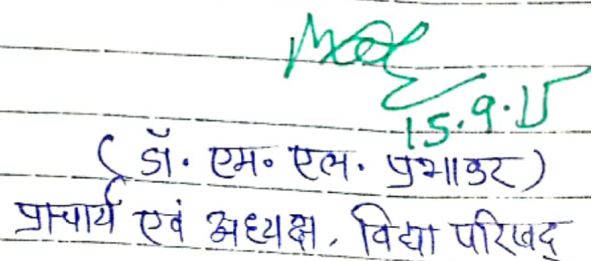 15.9.15
(डॉ. एम. एल. प्रभाकर)
प्राचार्य एवं अध्यक्ष, विद्या परिषद्